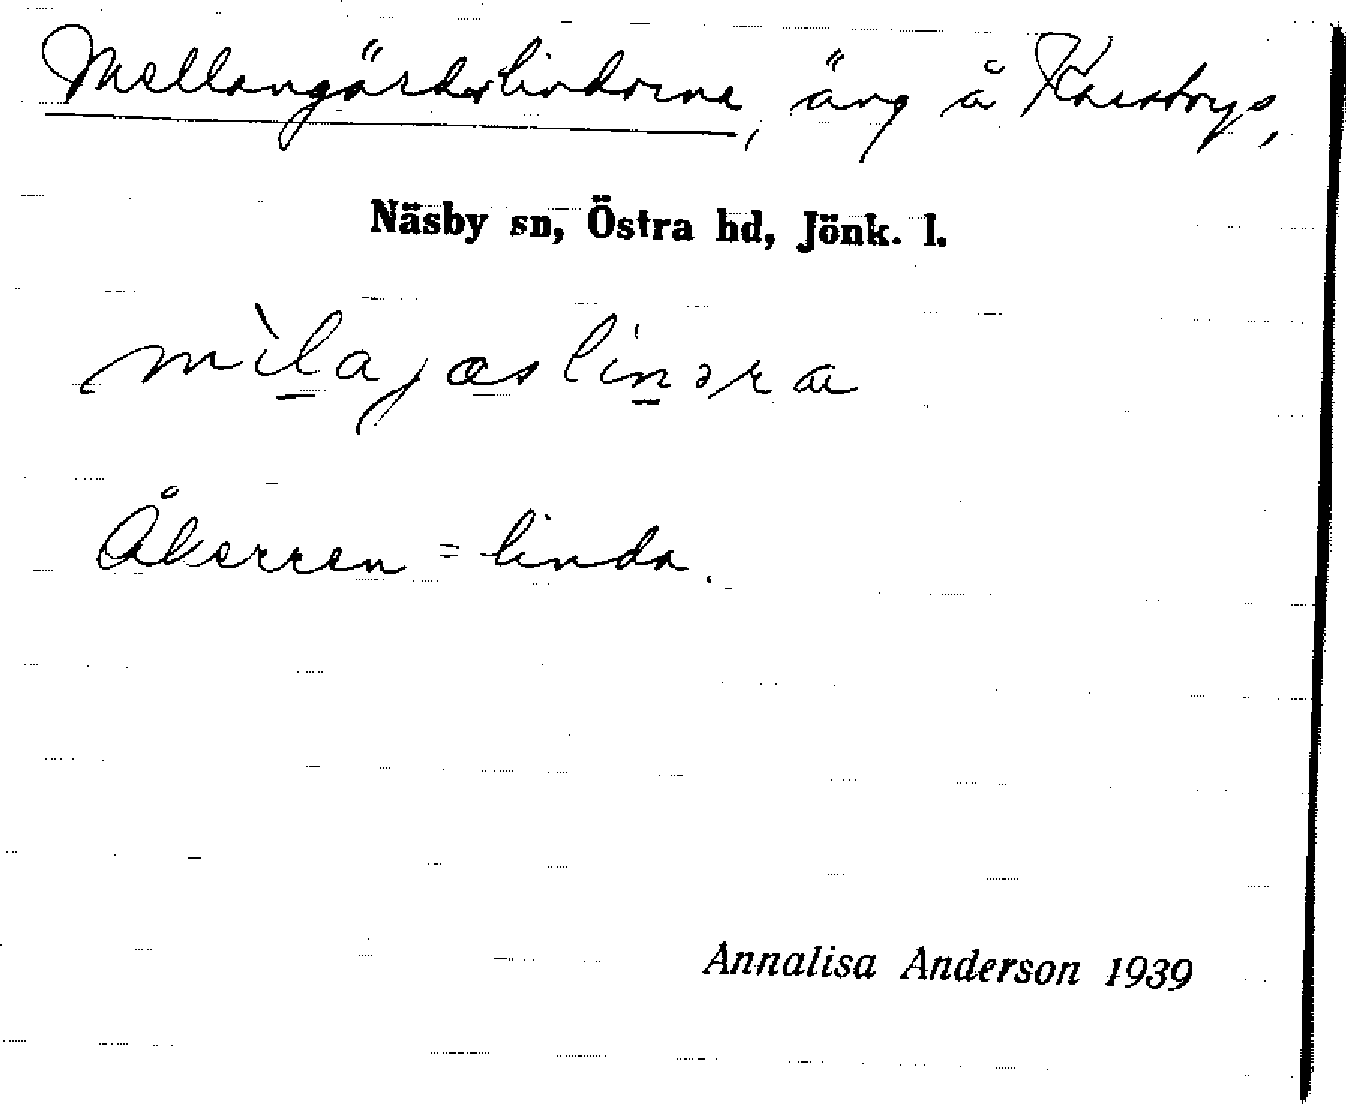 Mellangärdeslindorna, äng å Karstorps,
Näsby sn, Östra hd, Jönk. l.
mìlajæslinəra
Åkerren = linda.
Annalisa Anderson 1939